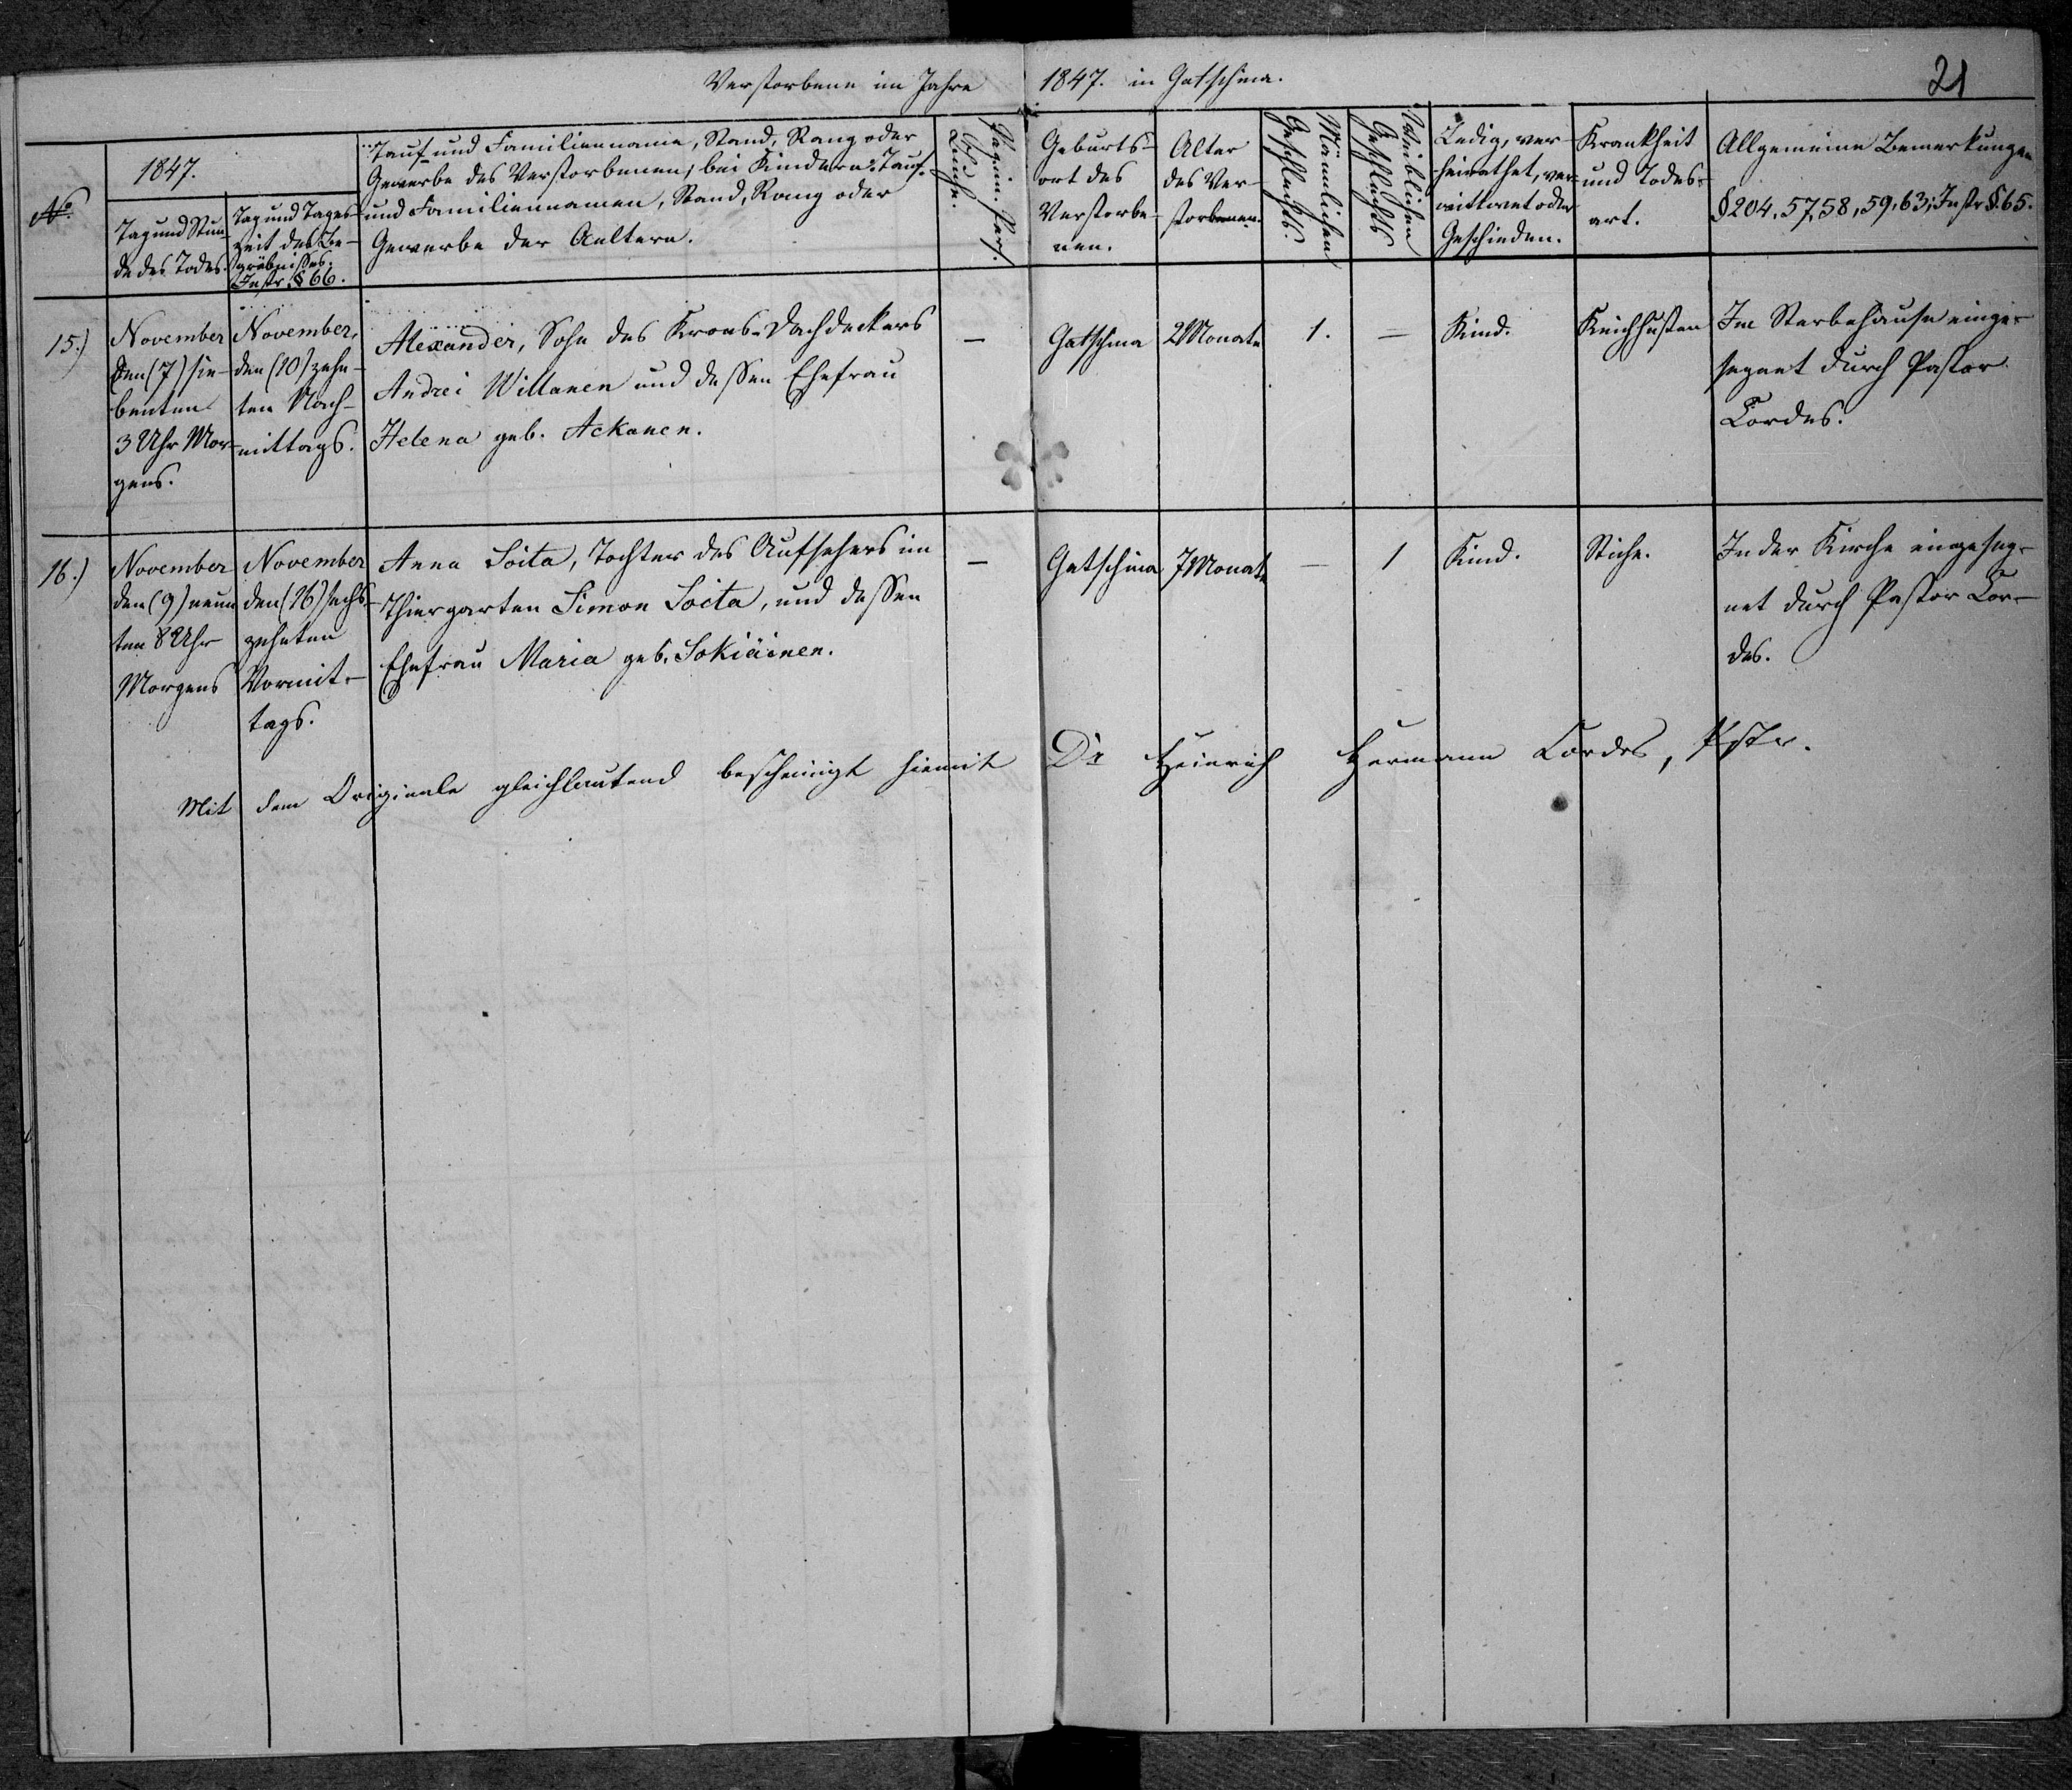 Verstorbene im Jahre 1847. in Gatschina.
21
№
1847.
Tag und Stun-
de des Todes.
Tag und Tages-
zeit des Be-
gräbnisses.
Instr. § 66.
Tauf- und Familienname, Stand, Rang oder
Gewerbe des Verstorbenen; bei Kindern: Tauf-
und Familiennamen, Stand, Rang oder
Gewerbe der Aeltern.
Pagin. Pers.
Buchs.
Geburts-
ort des
Verstorbe-
nen.
Alter
des Ver-
storbenen.
Männlichen
Geschlechts.
Weiblichen
Geschlechts
Ledig, ver-
heirathet, ver-
wittwet oder
Geschieden.
Krankheit
und Todes-
art.
Allgemeine Bemerkungen
§ 204, 57, 58, 59, 63; Instr. § 65.
15.)
November
den (7) sie-
benten
3 Uhr Mor-
gens.
November,
den (10) zehn-
ten Nach-
mittags.
Alexander, Sohn des Krons-Dachdeckers
Andrei Willanen und dessen Ehefrau
Helena geb. Ackanen.
—
Gatschina
2 Monate
1.
—
Kind.
Keichhusten
Im Sterbehause einge-
segnet durch Pastor
Cordes.
16.)
November
den (9) neun
ten 8 Uhr
Morgens
November
den (16) sechs-
zehnten
Vormit-
tags.
Anna Soita, Tochter des Aufsehers im
Thiergarten Simon Soita, und dessen
Ehefrau Maria geb. Sokiäinen.
—
Gatschina
7 Monate
—
1
Kind.
Stiche.
In der Kirche eingeseg-
net durch Pastor Cor-
des.
Mit dem Originale gleichlautend bescheinigt hiemit Dr Heinrich Hermann Cordes, Pstr.